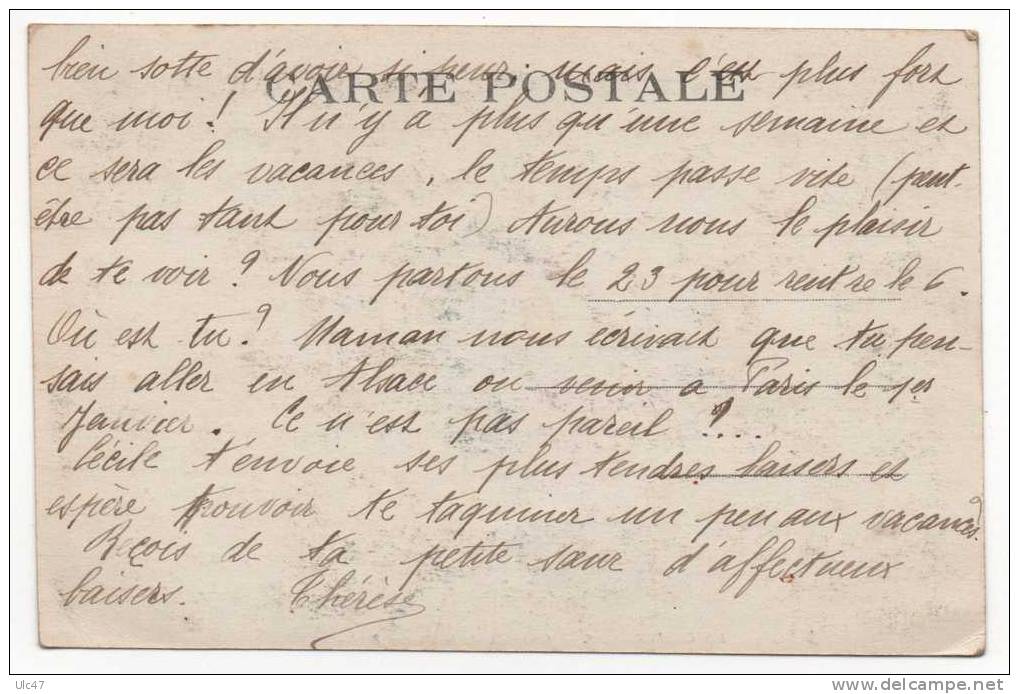 bien sotte d'avoir si peur. mais c'est plus fort
CARTE POSTALE
que moi! Il n'y a plus qu'une semaine et
ce sera les vacances, le temps passe vite (peut-
être pas tant pour toi) Aurons nous le plaisir
de te voir? Nous partons le 23 pour rentre le 6.
Où est tu? Maman nous écrivait que tu pen-
sais aller en Alsace ou venir a Paris le 1er
Janvier. Ce n'est pas pareil?...
Cécile t'envoie ses plus tendres baisers et
espère pouvoir te taquiner un peu aux vacances.
Reçois de ta petite sœur d'affectueux
baisers. Thérèse
Ulc47
delcampe.net